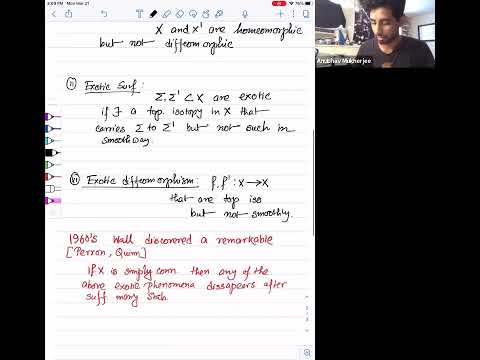 5:09 PM Mon Mar 21
76%
X and X' are homeomorphic
but not diffeomorphic
ii) Exotic Surf:
Σ, Σ' ⊂ X are exotic
if ∃ a top. isotopy in X that
carries Σ to Σ' but not such in
smooth way.
Exotic diffeomorphism: f, f' : X → X
that are top iso
but not smoothly.
1960's Wall discovered a remarkable
[Perron, Quinn]
If X is simply conn. then any of the
above exotic phenomena dissapears after
suff many
Anubhav Mukherjee